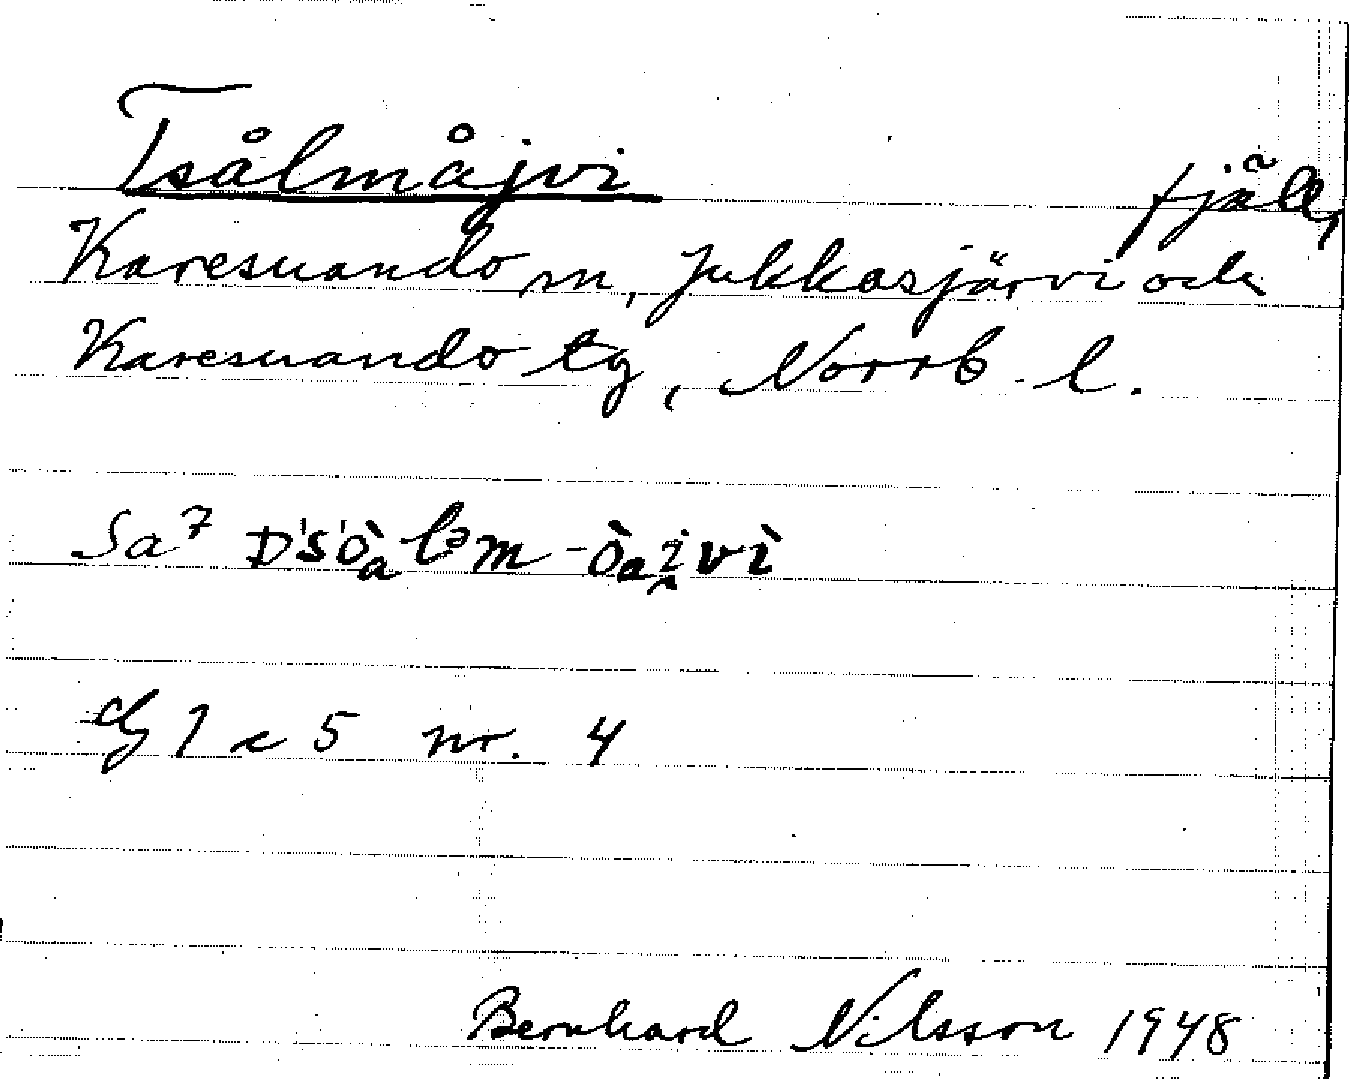 Tsålmåjvi fjäll,
Karesuando m, Jukkasjärvi och
Karesuando tg, Norrb. l.
Sa7
nr. 4
Bernhard Nilsson 1948